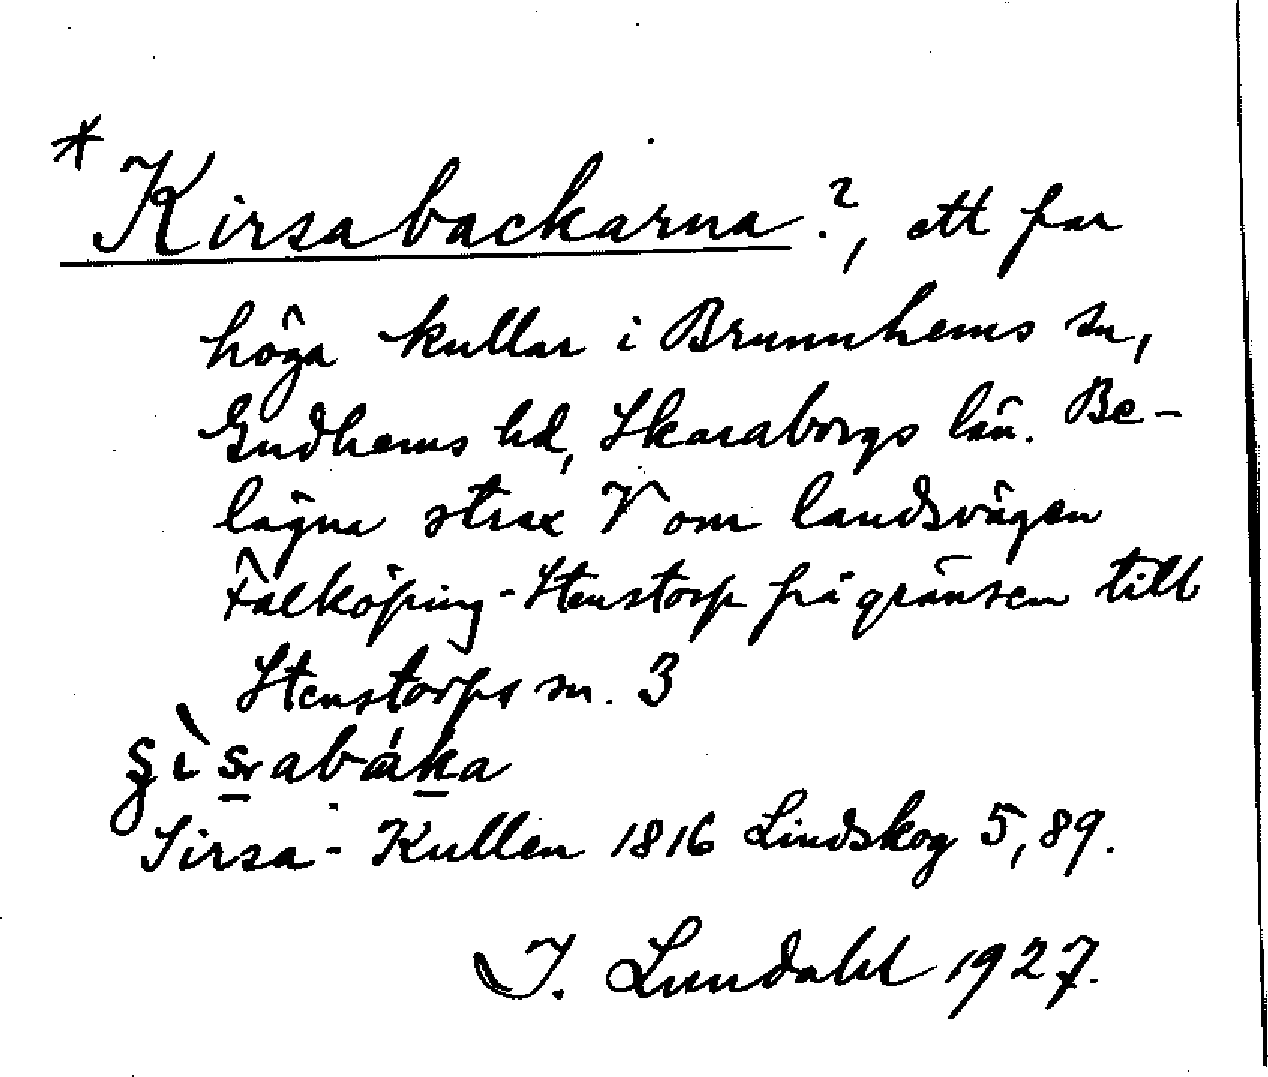 * Kirsabackarna?, ett par
höga kullar i Brunnhems sn,
Gudhems hd, Skaraborgs län. Be-
lägna strax V om landsvägen
Falköping-Stenstorp på gränsen till
Stenstorps sn. 3
Sirsa-Kullen 1816 Lindskog 5,89.
I. Lundahl 1927.